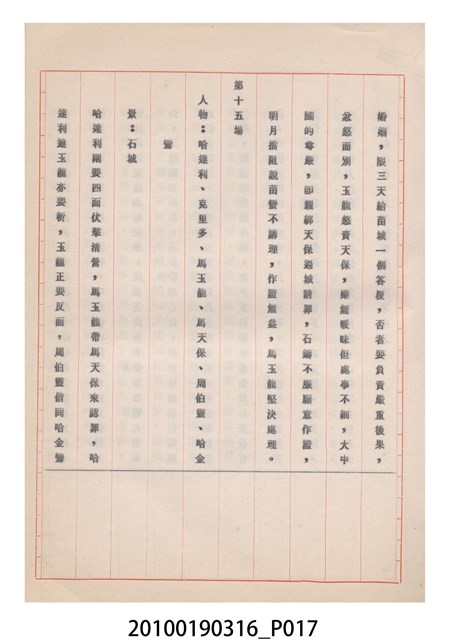 婚姻,限三天給苗城一個答復,否者要負責嚴重後果,
忿怒而別,玉龍怒責天保,雖無曖昧但處事不細,大中
國的尊嚴,即親綁天保過城請罪,石鑄不服願意作證,
明月擋阻說苗蠻不講理,作證無益,馬玉龍堅決處理。
第十五場
人物:哈達利、克里多、馬玉龍、馬天保、周伯靈、哈金
鸞
景:石城
哈達利剛要四面伏擊清營,馬玉龍帶馬天保來認罪,哈
達利連玉龍亦要斬,玉龍正要反面,周伯靈偕同哈金鸞
20100190316_P017